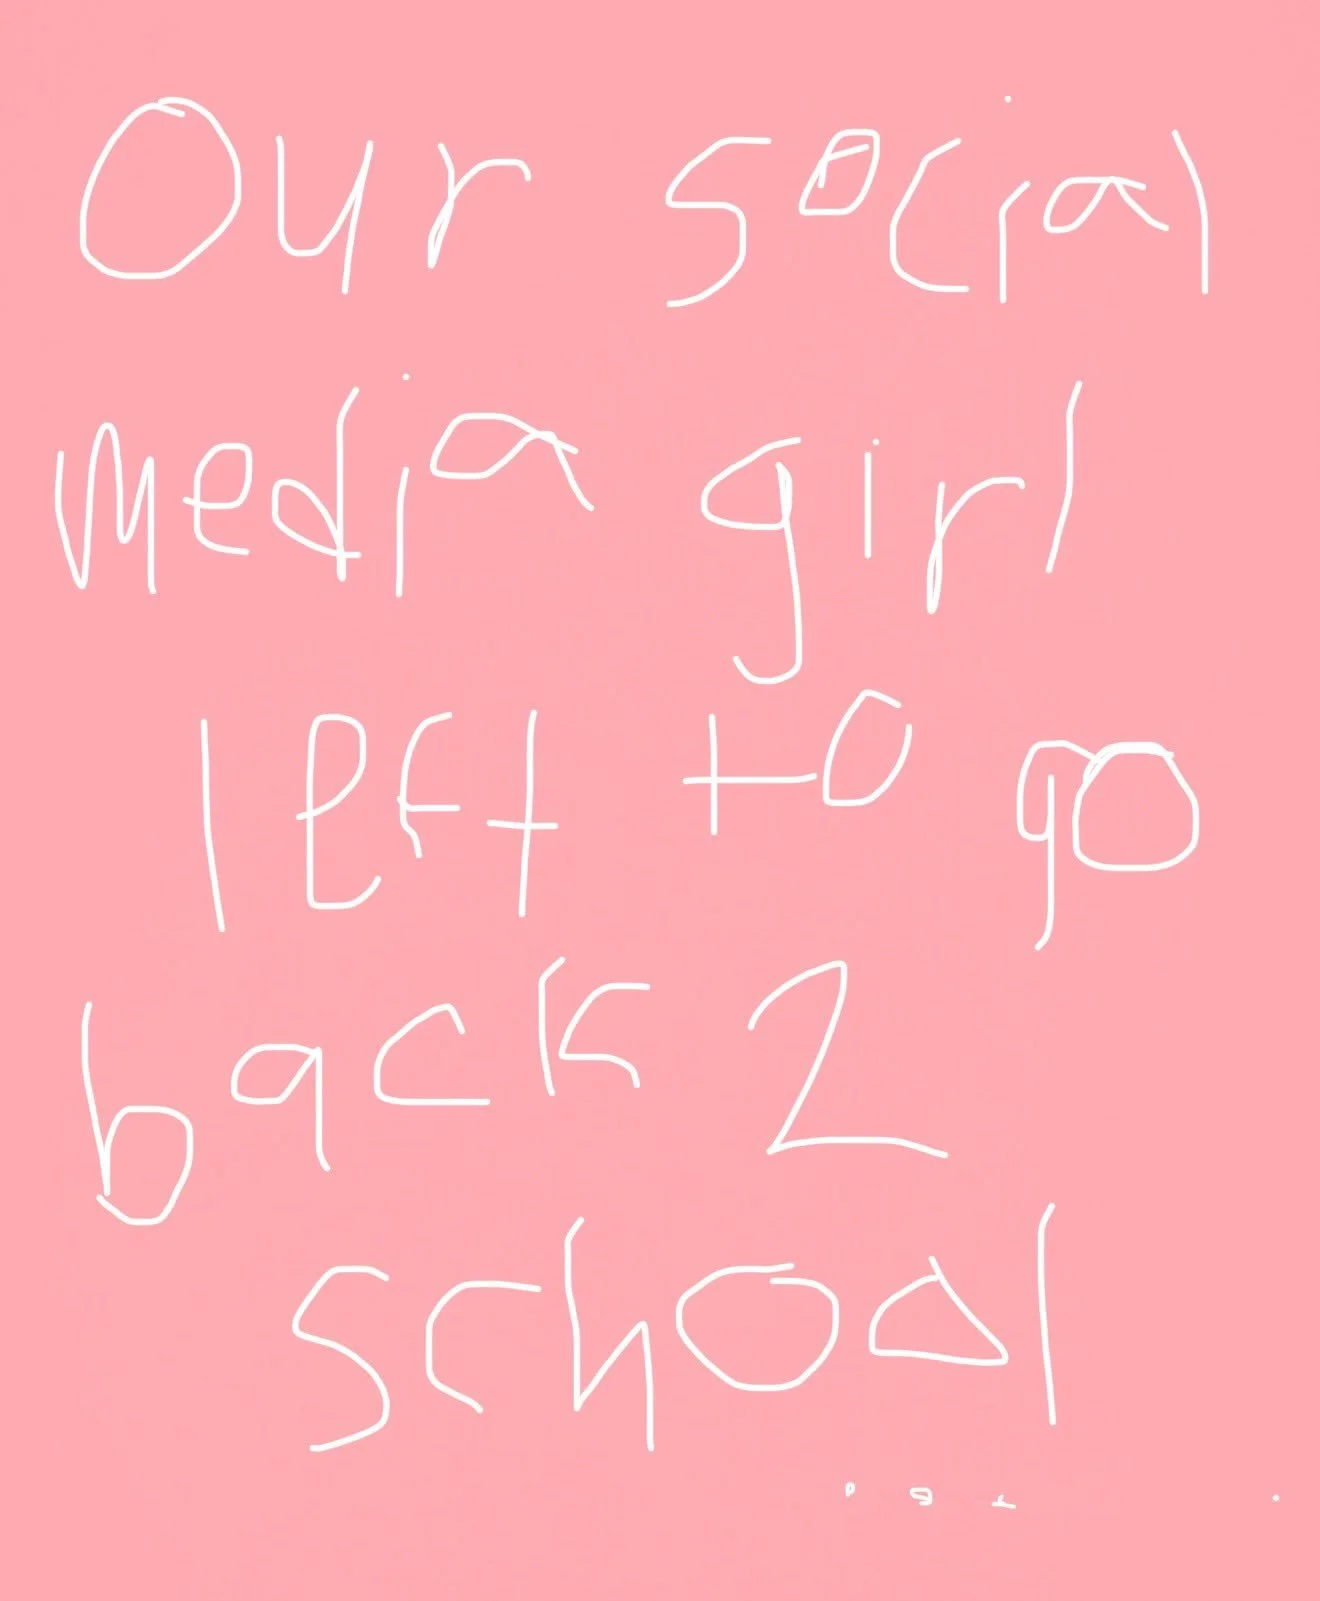 Our social
media girl
left to go
back 2
school
...